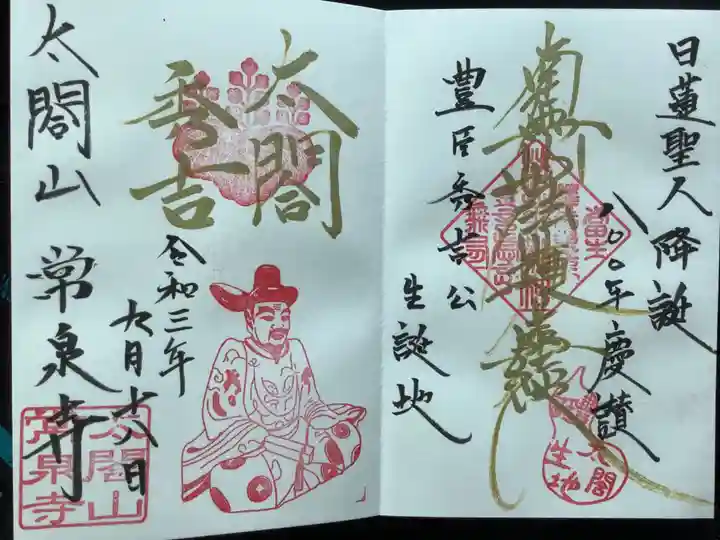 日蓮聖人降誕
八〇〇年慶讃
南無妙法蓮華経
豊臣秀吉公
生誕地
太閤
生地
太閤
秀吉
令和三年
九月十八日
太閤山 常泉寺
太閤山
常泉寺